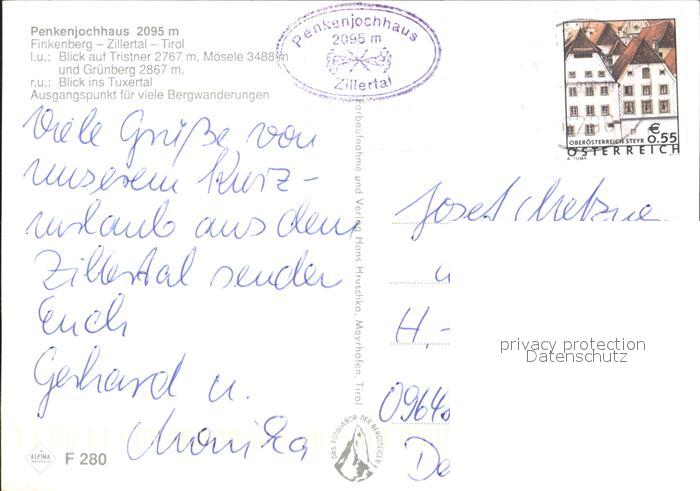 Penkenjochhaus 2095 m
Finkenberg – Zillertal – Tirol
l.u.: Blick auf Tristner 2767 m, Mösele 3488 m
und Grünberg 2867 m.
r.u.: Blick ins Tuxertal
Ausgangspunkt für viele Bergwanderungen
Penkenjochhaus
2095 m
Zillertal
OBERÖSTERREICH STEYR
€
0.55
ÖSTERREICH
A. TUMA
Viele Grüße von
unserem Kurz-
urlaub aus dem
Zillertal senden
Euch
Gerhard u.
Monika
Farbaufnahme und Verlag Hans Hruschka, Mayrhofen, Tirol
Josef
u
H.-
0964
De
privacy protection
Datenschutz
DAS FOTOLABOR DER BERGSTEIGER
ALPINA
F 280